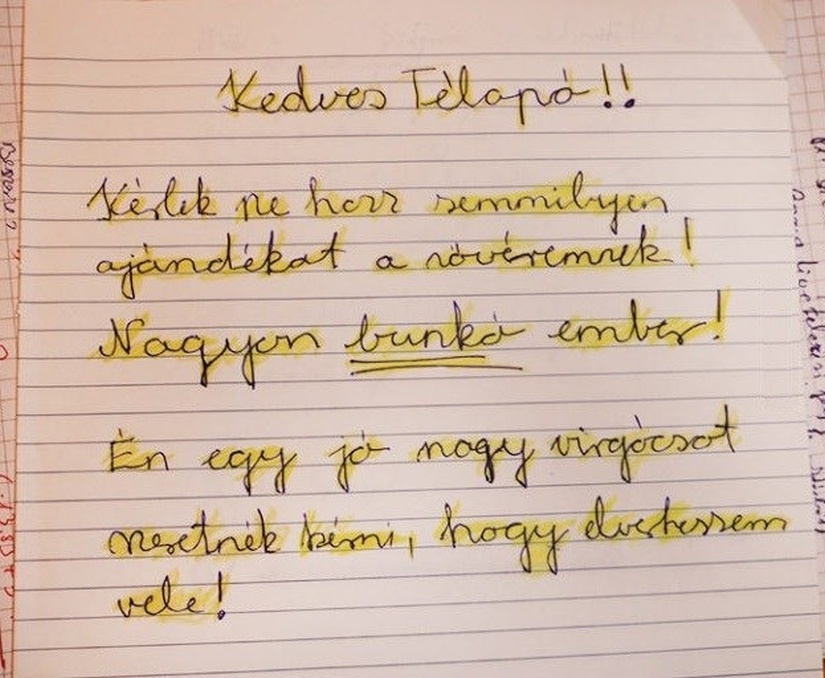 Kedves Télapó!!
Kérlek ne hozz semmilyen
ajándékat a nővéremnek!
Nagyon bunkó ember!
Én egy jó nagy virgácsot
szeretnék kérni, hogy elverhessem
vele!